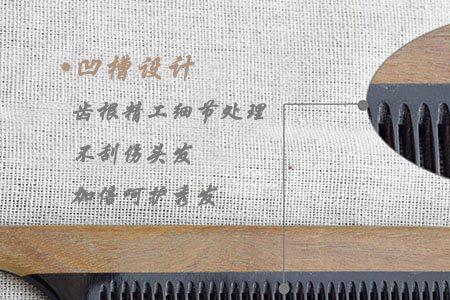 •凹槽设计
齿根精工细节处理
不刮伤头发
加倍呵护秀发